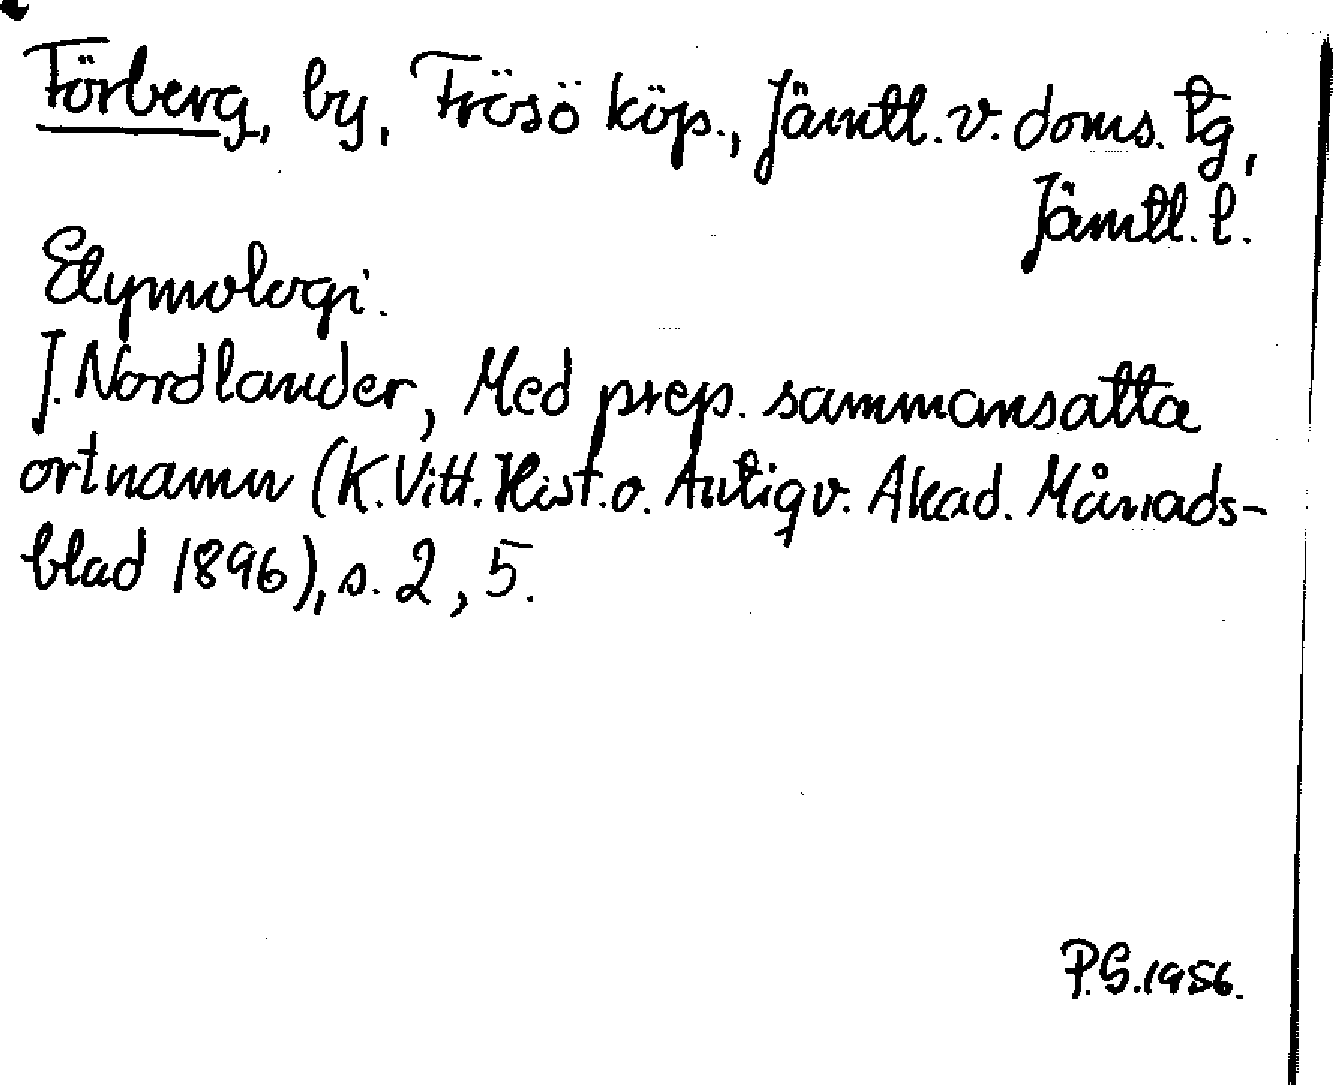 Förberg, by, Frösö köp., Jämtl. v. doms. tg,
Jämtl. l.
Etymologi.
J. Nordlander, Med prep. sammansatta
ortnamn (K. Vitt. Hist. o. Antiqv. Akad. Månads-
blad 1896), s. 2, 5.
P.G. 1956.